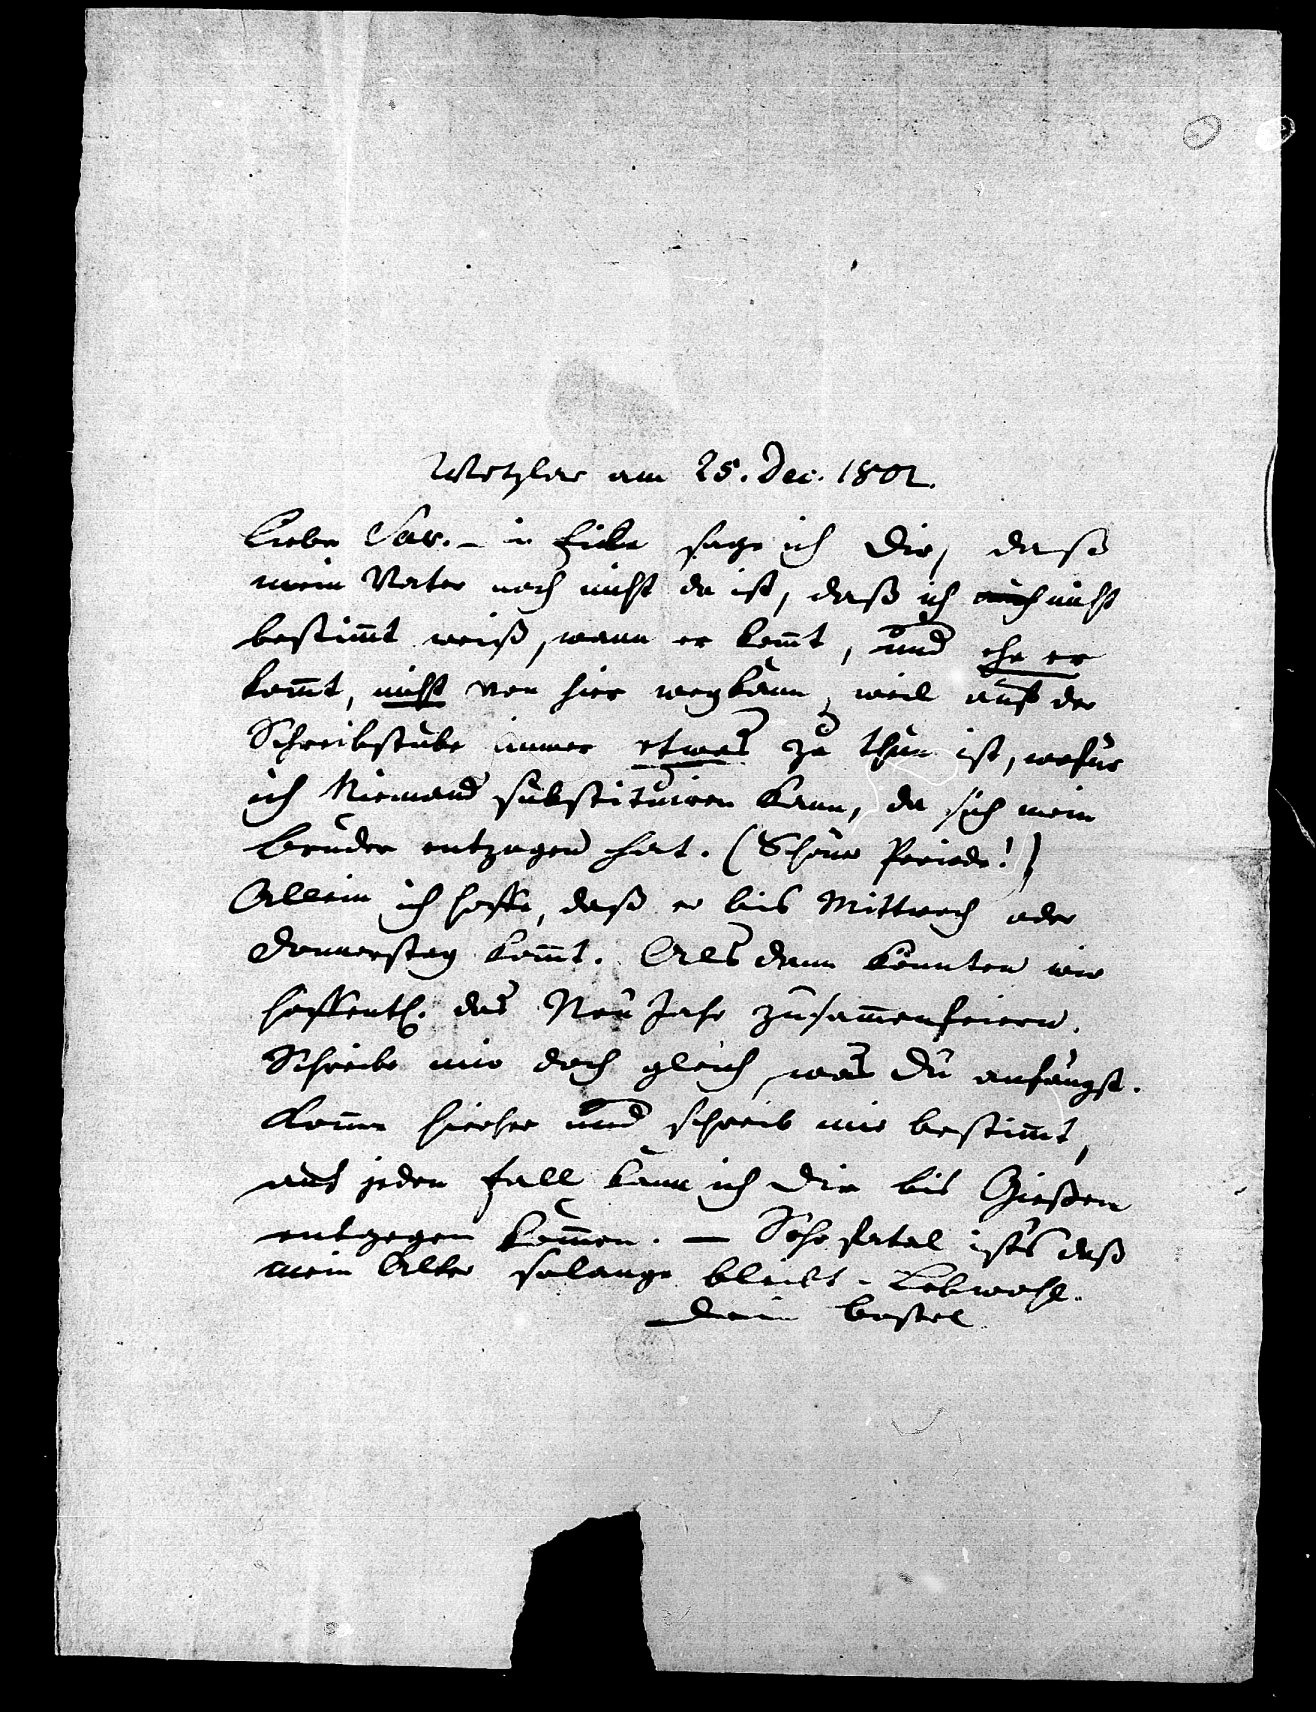 Wetzlar am 25. Dec. 1802.
Lieber Sav. – in Eile sage ich Dir, daß
mein Vater noch nicht da ist, daß ich auch nicht
bestimmt weiß, wann er kommt, und ehe er
kommt, nicht von hier wegkann, weil auf der
Schreibstube immer etwas zu thun ist, wofür
ich Niemand substituiren kann, da sich mein
Bruder entzogen hat. (Schöne Periode!)
Allein ich hoffe, daß er bis Mittwoch oder
Donnerstag kommt. Als dann könnten wir
hoffentl. das Neu Jahr zusammenfeiern.
Schreibe mir doch gleich, was Du anfängst.
Komm hierher und schreib mir bestimmt,
auf jeden Fall kann ich Dir bis Gießen
entgegen kommen. – Sehr fatal ists daß
mein Alter solange bleibt. Lebwohl.
Dein Bostel